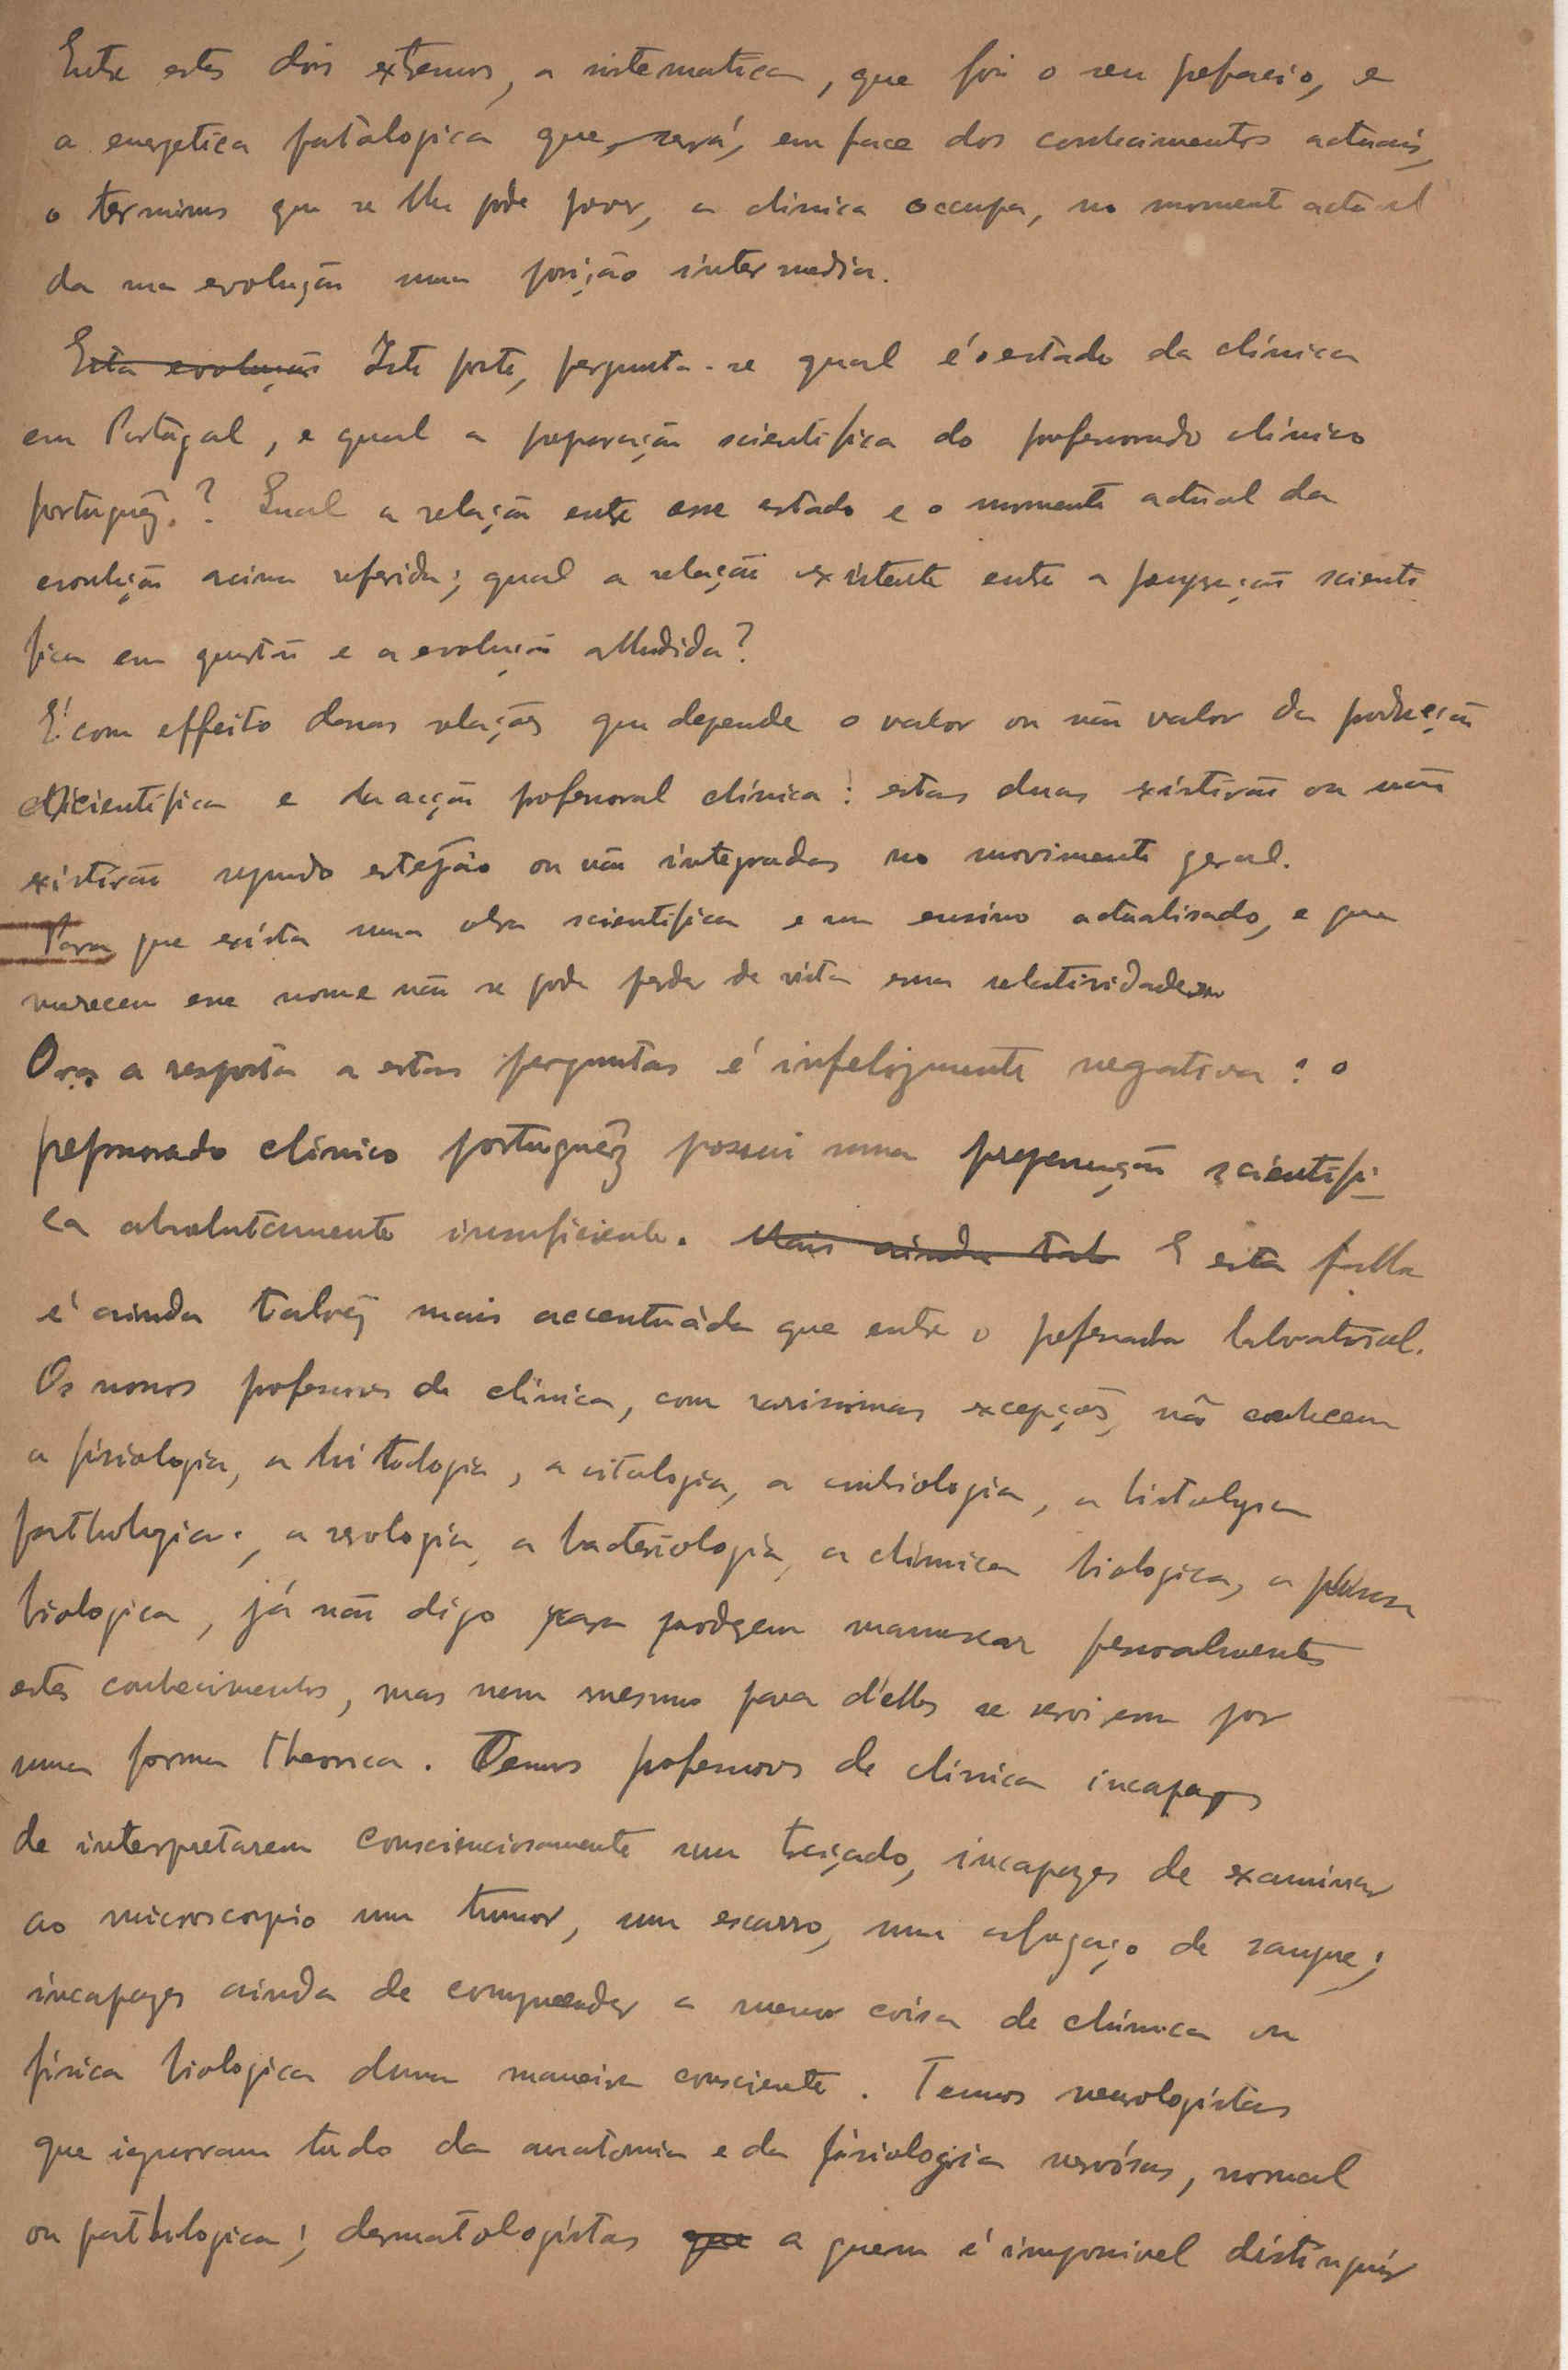 Entre estes dois extremos, a sistematica, que foi o seu prefacio, e
a energetica patologica que, será, em face dos conhecimentos actuais,
o terminus que se lhe pode prever, a clinica occupa, no momento actual
da sua evolução uma posição intermedia.
Esta evolução Isto posto, pergunta-se qual é o estado da clínica
em Portugal, e qual a preparação scientifica do professorado clínico
português.? Qual a relação entre esse estado e o momento actual da
evolução acima referida; qual a relação existente entre a preparação scienti
fica em questão e a evolução alludida?
É com effeito dessas relações que depende o valor ou não valor da producção
scientífica e da acção professoral clínica: estas duas existirão ou não
existirão segundo estejão ou não integradas no movimento geral.
Para que exista uma obra scientifica e um ensino actualisado, e que
merecem esse nome não se pode perder de vista essa relatividade
Ora a resposta a estas perguntas é infelizmente negativa: o
professorado clínico português possui uma preparação scientifi-
ca absolutamente insuficiente. Mais ainda tal E esta falta
é ainda talvez mais accentuada que entre o professorado laboratorial.
Os nossos professores de clínica, com rarissimas excepções, não conhecem
a fisiologia, a histologia, a citologia, a embriologia, a histologia
pathologica, a serologia, a bacteriologia, a chimica biologica, a física
biologica, já não digo para poderem manusear pessoalmente
estes conhecimentos, mas nem mesmo para d'elles se servirem por
uma forma theorica. Temos professores de clínica incapazes
de interpretarem conscienciosamente um traçado, incapazes de examinar
ao microscopio um tumor, um escarro, um esfregaço de sangue;
incapazes ainda de comprehender a menor coisa de chimica ou
física biologica duma maneira consciente. Temos neurologistas
que ignoram tudo da anatomia e da fisiologia nervósas, normal
ou pathologica; dermatologistas que a quem é impossivel distinguir